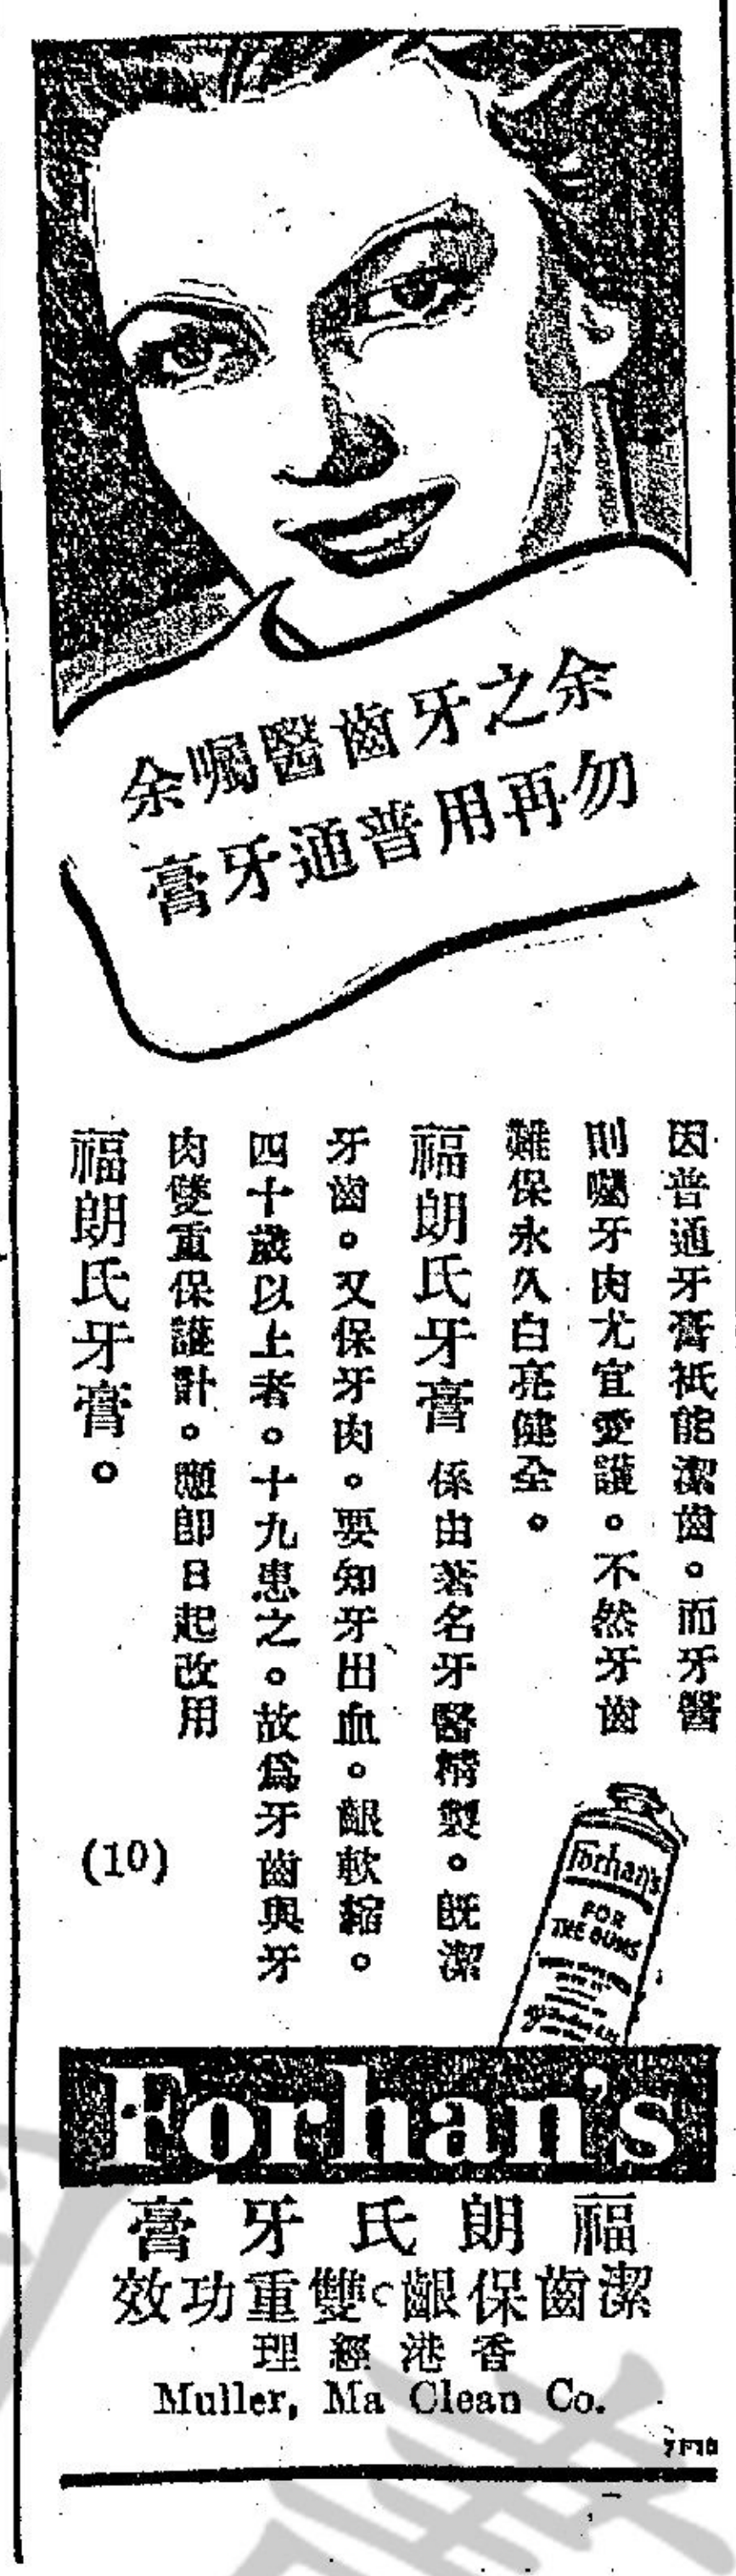 余之牙齒醫囑余
勿再用普通牙膏
因普通牙膏祇能潔齒。而牙醫
則囑牙肉尤宜愛護。不然牙齒
難保永久白亮健全。
福朗氏牙膏係由著名牙醫精製。既潔
牙齒。又保牙肉。要知牙出血。齦軟縮。
四十歲以上者。十九患之。故爲牙齒與牙
肉雙重保護計。應即日起改用
福朗氏牙膏。
(10)
Forhan's
FOR
THE GUMS
Forhan's
福朗氏牙膏
潔齒保齦。雙重功效
香港經理
Muller, Ma Clean Co.